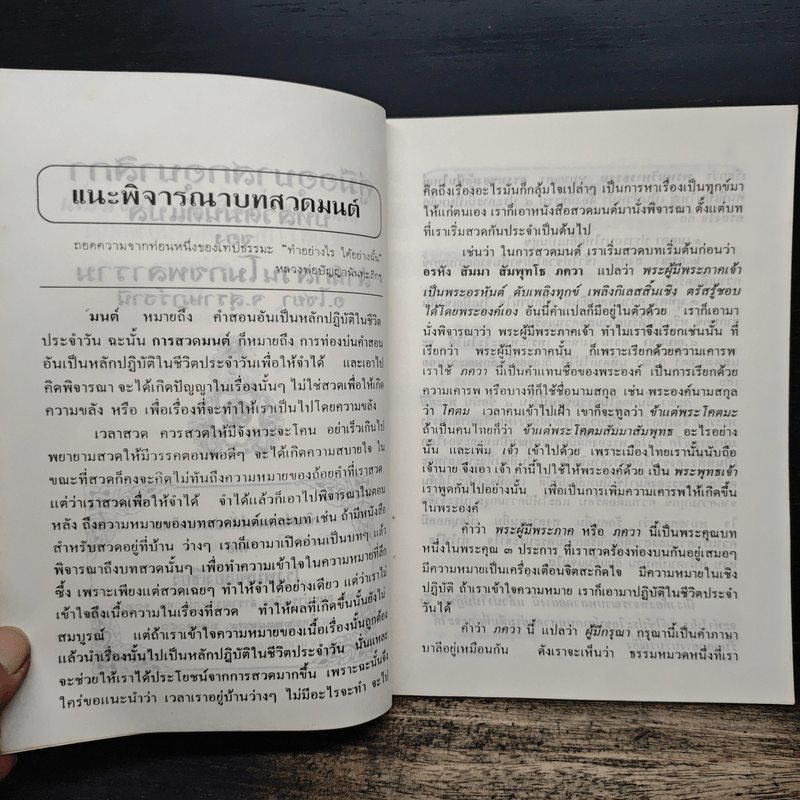 แนะพิจารณาบทสวดมนต์
ถอดความจากท่อนหนึ่งของเทปธรรมะ "ทำอย่างไร ได้อย่างนั้น"
หลวงพ่อปัญญานันทะภิกขุ
มนต์ หมายถึง คำสอนอันเป็นหลักปฏิบัติในชีวิต
ประจำวัน ฉะนั้น การสวดมนต์ ก็หมายถึง การท่องบ่นคำสอน
อันเป็นหลักปฏิบัติในชีวิตประจำวันเพื่อให้จำได้ และเอาไป
คิดพิจารณา จะได้เกิดปัญญาในเรื่องนั้นๆ ไม่ใช่สวดเพื่อให้เกิด
ความขลัง หรือ เพื่อเรื่องที่จะทำให้เราเป็นไปโดยความขลัง
เวลาสวด ควรสวดให้มีจังหวะจะโคน อย่าเร็วเกินไป
พยายามสวดให้มีวรรคตอนพอดีๆ จะได้เกิดความสบายใจ ใน
ขณะที่สวดก็คงจะคิดไม่ทันถึงความหมายของถ้อยคำที่เราสวด
แต่ว่าเราสวดเพื่อให้จำได้ จำได้แล้วก็เอาไปพิจารณาในตอน
หลัง ถึงความหมายของบทสวดมนต์แต่ละบท เช่น ถ้ามีหนังสือ
สำหรับสวดอยู่ที่บ้าน ว่างๆ เราก็เอามาเปิดอ่านเป็นบทๆ แล้ว
พิจารณาถึงบทสวดนั้นๆ เพื่อทำความเข้าใจในความหมายที่ลึก
ซึ้ง เพราะเพียงแต่สวดเฉยๆ ทำให้จำได้อย่างเดียว แต่ว่าเราไม่
เข้าใจถึงเนื้อความในเรื่องที่สวด ทำให้ผลที่เกิดขึ้นนั้นยังไม่
สมบูรณ์ แต่ถ้าเราเข้าใจความหมายของเนื้อเรื่องนั้นถูกต้อง
แล้วนำเรื่องนั้นไปเป็นหลักปฏิบัติในชีวิตประจำวัน นั่นแหละ
จะช่วยให้เราได้ประโยชน์จากการสวดมากขึ้น เพราะฉะนั้นจึง
ใคร่ขอแนะนำว่า เวลาเราอยู่บ้านว่างๆ ไม่มีอะไรจะทำ จะไป
คิดถึงเรื่องอะไรมันก็กลุ้มใจเปล่าๆ เป็นการหาเรื่องเป็นทุกข์มา
ให้แก่ตนเอง เราก็เอาหนังสือสวดมนต์มานั่งพิจารณา ตั้งแต่บท
ที่เราเริ่มสวดกันประจำเป็นต้นไป
เช่นว่า ในการสวดมนต์ เราเริ่มสวดบทเริ่มต้นก่อนว่า
อรหัง สัมมา สัมพุทโธ ภควา แปลว่า พระผู้มีพระภาคเจ้า
เป็นพระอรหันต์ ดับเพลิงทุกข์ เพลิงกิเลสสิ้นเชิง ตรัสรู้ชอบ
ได้โดยพระองค์เอง อันนี้คำแปลก็มีอยู่ในตัวด้วย เราก็เอามา
นั่งพิจารณาว่า พระผู้มีพระภาคเจ้า ทำไมเราจึงเรียกเช่นนั้น ที่
เรียกว่า พระผู้มีพระภาคนั้น ก็เพราะเรียกด้วยความเคารพ
เราใช้ ภควา นี้เป็นคำแทนชื่อของพระองค์ เป็นการเรียกด้วย
ความเคารพ หรือบางทีก็ใช้ชื่อนามสกุล เช่น พระองค์นามสกุล
ว่า โคตม เวลาคนเข้าไปเฝ้า เขาก็จะทูลว่า ข้าแต่พระโคตมะ
ถ้าเป็นคนไทยก็ว่า ข้าแต่พระโคตมสัมมาสัมพุทธ อะไรอย่าง
นั้น และเพิ่ม เจ้า เข้าไปด้วย เพราะเมืองไทยเรานั้นนับถือ
เจ้านาย จึงเอา เจ้า คำนี้ไปใช้ให้พระองค์ด้วย เป็น พระพุทธเจ้า
เราพูดกันไปอย่างนั้น เพื่อเป็นการเพิ่มความเคารพให้เกิดขึ้น
ในพระองค์
คำว่า พระผู้มีพระภาค หรือ ภควา นี้เป็นพระคุณบท
หนึ่งในพระคุณ ๓ ประการ ที่เราสวดร้องท่องบนกันอยู่เสมอๆ
มีความหมายเป็นเครื่องเตือนจิตสะกิดใจ มีความหมายในเชิง
ปฏิบัติ ถ้าเราเข้าใจความหมาย เราก็เอามาปฏิบัติในชีวิตประจำ
วันได้
คำว่า ภควา นี้ แปลว่า ผู้มีกรุณา กรุณานี้เป็นคำภาษา
บาลีอยู่เหมือนกัน ดังเราจะเห็นว่า ธรรมหมวดหนึ่งที่เรา